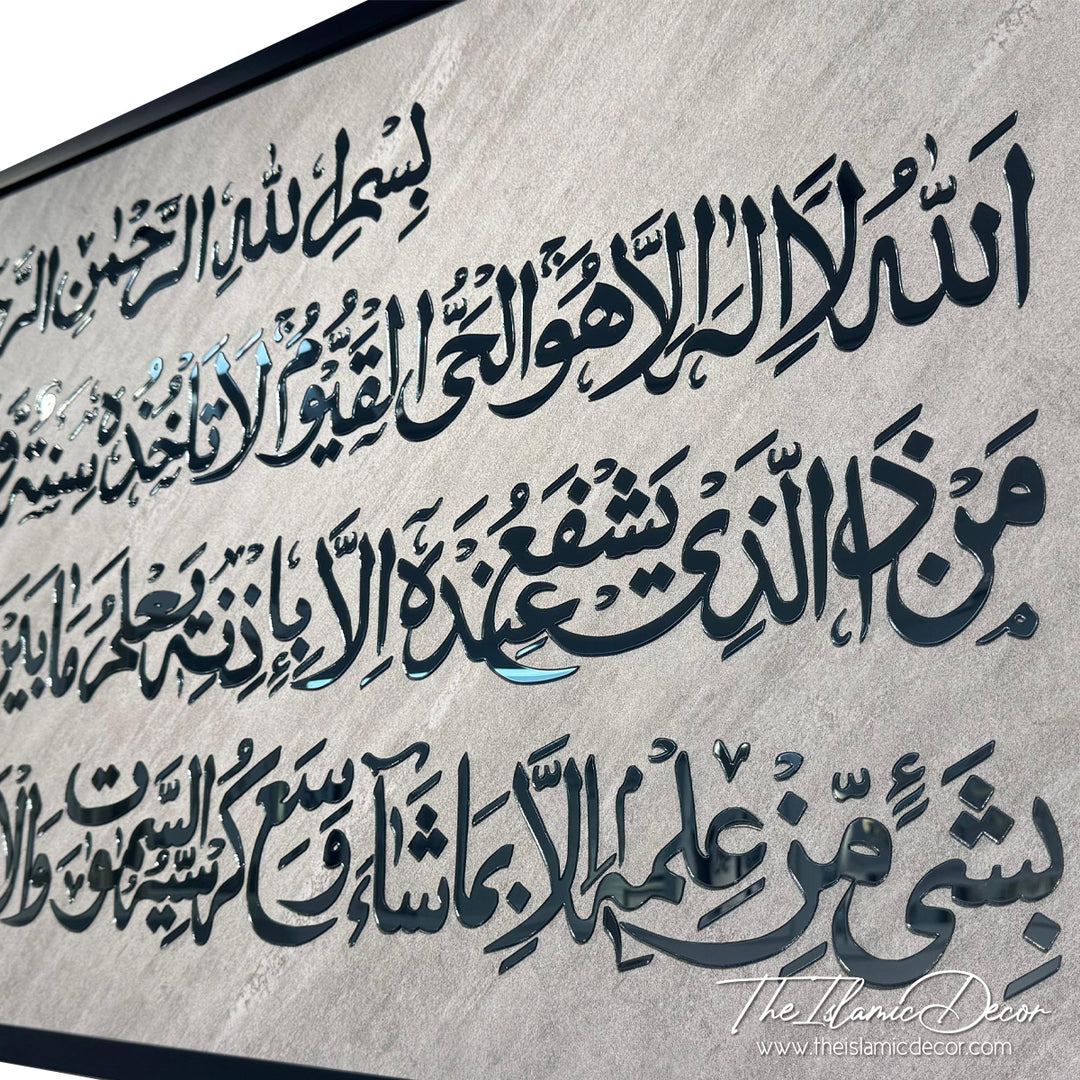 بِسْمِ اللهِ الرَّحْمٰنِ
اَللّٰهُ لَا اِلٰهَ اِلَّا هُوَ الْحَىُّ الْقَيُّوْمُ لَا تَاْخُذُهٗ سِنَةٌ
مَنْ ذَا الَّذِىْ يَشْفَعُ عِنْدَهٗٓ اِلَّا بِاِذْنِهٖ يَعْلَمُ مَا
بِشَىْءٍ مِّنْ عِلْمِهٖٓ اِلَّا بِمَا شَآءَ وَسِعَ كُرْسِيُّهُ السَّمٰوٰتِ
The Islamic Decor
www.theislamicdecor.com